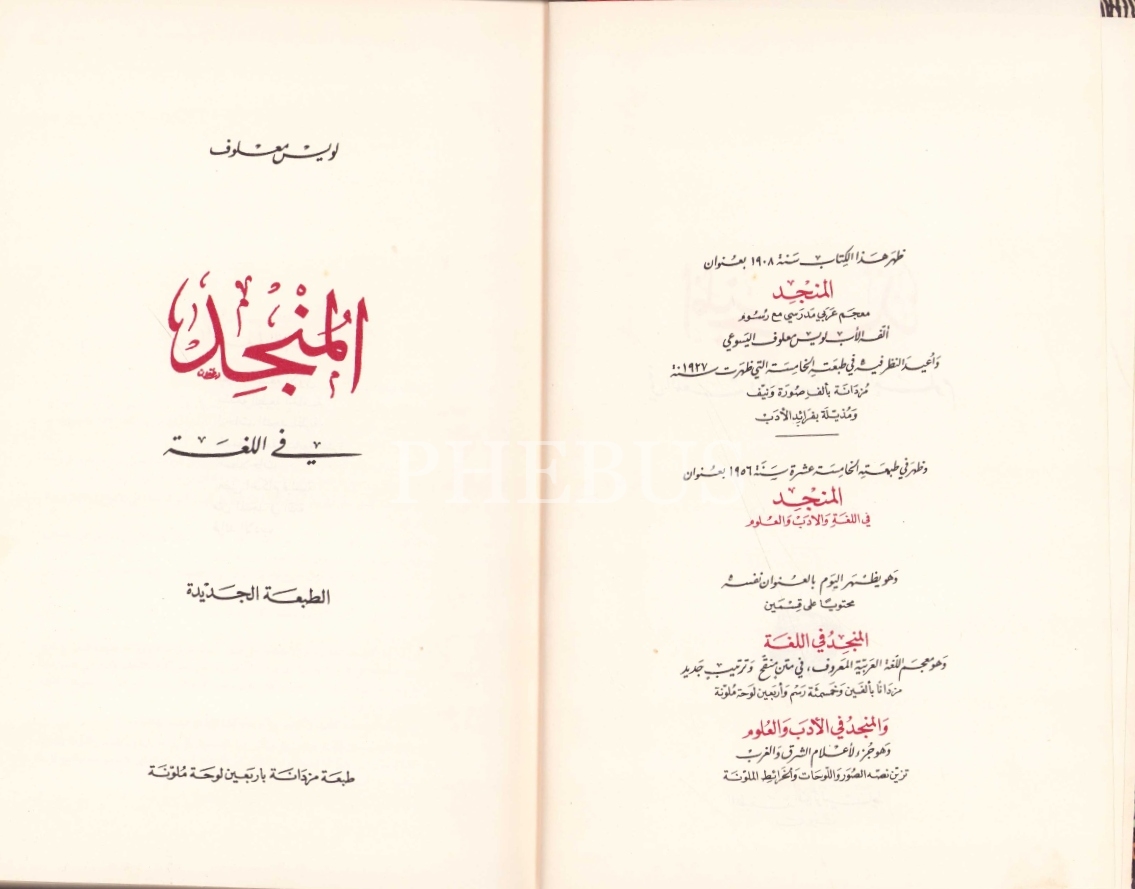 ظهر هذا الكتاب سنة ١٩٠٨ بعنوان
المنجد
معجم عربي مدرسي مع رسوم
ألّفه الأب لويس معلوف اليسوعي
وأعيد النظر فيه في طبعته الخامسة التي ظهرت سنة ١٩٢٧:
مزدانة بألف صورة ونيّف
ومذيّلة بفرائد الأدب
وظهر في طبعته الخامسة عشرة سنة ١٩٥٦ بعنوان
المنجد
في اللغة والأدب والعلوم
وهو يظهر اليوم بالعنوان نفسه
محتويًا على قسمين
المنجد في اللغة
وهو معجم اللغة العربيّة المعروف، في متن منقّح وترتيب جديد
مزدانًا بألفين وخمسمئة رسم وأربعين لوحة ملوّنة
والمنجد في الأدب والعلوم
وهو جزء لأعلام الشرق والغرب
تزيّن نصّه الصور واللوحات والخرائط الملوّنة
لويس معلوف
المُنْجِد
في اللغة
الطبعة الجديدة
طبعة مزدانة باربعين لوحة ملوّنة
PHEBUS